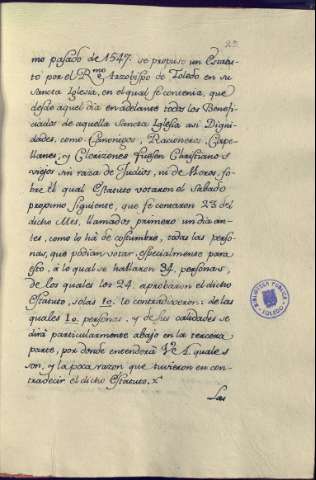 23.
mo pasado de 1547. se propuso un Estatu-
to por el R.mo Arzobispo de Toledo en su
Sancta Iglesia, en el qual se contenia, que
desde aquel dia en adelante todos los Benefi-
ciados de aquella Sancta Iglesia asi Digni-
dades, como Canonigos, Racioneros, Cape-
llanes, y Clerizones fuesen Christianos
viejos sin raza de Judios, ni de Moros, so-
bre el qual Estatuto votaron el Sabado
proximo siguiente, que se contaron 23 del
dicho Mes, llamados primero un dia an-
tes, como lo há de costumbre, todas las perso-
nas, que podian votar, especialmente para
esto, á lo qual se hallaron 34. personas,
de los quales los 24. aprobaron el dicho
Estatuto, solas 10. lo contradixeron: de las
quales 10. personas, y de sus calidades se
dirá particularmente abajo en la tercera
parte, por donde entenderá quales
son, y la poca razon que tuvieron en con-
tradecir el dicho Estatuto.
Las
BIBLIOTECA PUBLICA
TOLEDO